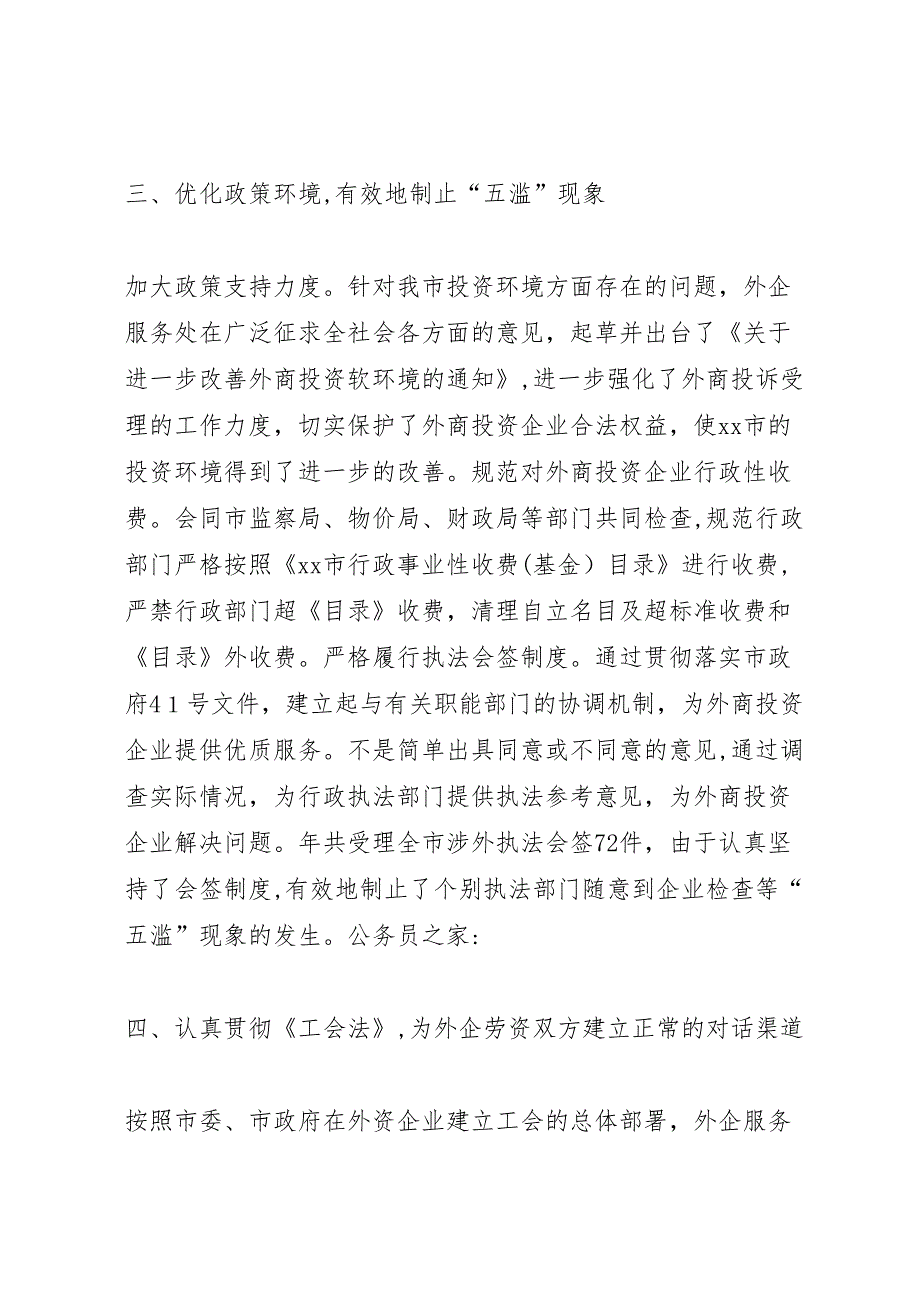 三、优化政策环境,有效地制止“五滥”现象
加大政策支持力度。针对我市投资环境方面存在的问题，外企
服务处在广泛征求全社会各方面的意见，起草并出台了《关于
进一步改善外商投资软环境的通知》,进一步强化了外商投诉受
理的工作力度，切实保护了外商投资企业合法权益，使xx市的
投资环境得到了进一步的改善。规范对外商投资企业行政性收
费。会同市监察局、物价局、财政局等部门共同检查,规范行政
部门严格按照《xx市行政事业性收费(基金）目录》进行收费,
严禁行政部门超《目录》收费，清理自立名目及超标准收费和
《目录》外收费。严格履行执法会签制度。通过贯彻落实市政
府4１号文件，建立起与有关职能部门的协调机制，为外商投资
企业提供优质服务。不是简单出具同意或不同意的意见,通过调
查实际情况，为行政执法部门提供执法参考意见，为外商投资
企业解决问题。年共受理全市涉外执法会签72件，由于认真坚
持了会签制度,有效地制止了个别执法部门随意到企业检查等“
五滥”现象的发生。公务员之家:
四、认真贯彻《工会法》,为外企劳资双方建立正常的对话渠道
按照市委、市政府在外资企业建立工会的总体部署，外企服务